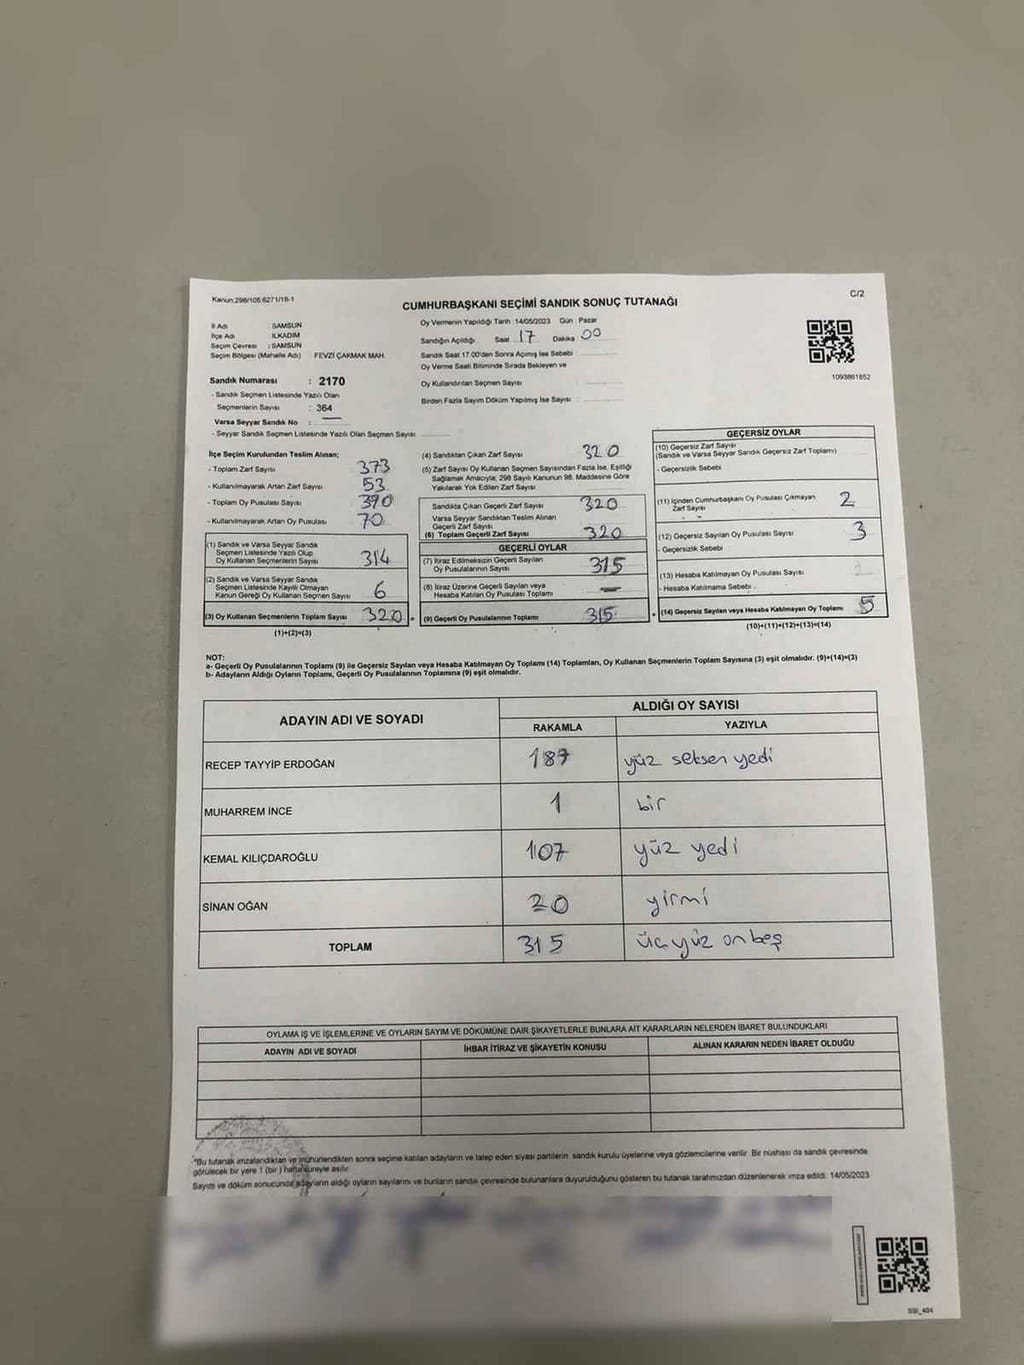 Kanun:298/105:6271/18-1
C/2
CUMHURBAŞKANI SEÇİMİ SANDIK SONUÇ TUTANAĞI
İl Adı : SAMSUN
İlçe Adı : İLKADIM
Seçim Çevresi : SAMSUN
Seçim Bölgesi (Mahalle Adı) FEVZİ ÇAKMAK MAH.
Sandık Numarası : 2170
- Sandık Seçmen Listesinde Yazılı Olan
Seçmenlerin Sayısı : 364
Varsa Seyyar Sandık No :
- Seyyar Sandık Seçmen Listesinde Yazılı Olan Seçmen Sayısı
Oy Vermenin Yapıldığı Tarih :14/05/2023 Gün : Pazar
Sandığın Açıldığı Saat 17 Dakika 00
Sandık Saat 17.00'den Sonra Açımış İse Sebebi
Oy Verme Saati Bitiminde Sırada Bekleyen ve
Oy Kullandırılan Seçmen Sayısı
Birden Fazla Sayım Döküm Yapılmış İse Sayısı
1093861852
İlçe Seçim Kurulundan Teslim Alınan;
- Toplam Zarf Sayısı 373
- Kullanılmayarak Artan Zarf Sayısı 53
- Toplam Oy Pusulası Sayısı 390
- Kullanılmayarak Artan Oy Pusulası 70
(1) Sandık ve Varsa Seyyar Sandık
Seçmen Listesinde Yazılı Olup
Oy Kullanan Seçmenlerin Sayısı 314
(2) Sandık ve Varsa Seyyar Sandık
Seçmen Listesinde Kayıtlı Olmayan
Kanun Gereği Oy Kullanan Seçmen Sayısı 6
(3) Oy Kullanan Seçmenlerin Toplam Sayısı 320 =
(1)+(2)=(3)
(4) Sandıktan Çıkan Zarf Sayısı 320
(5) Zarf Sayısı Oy Kullanan Seçmen Sayısından Fazla İse, Eşitliği
Sağlamak Amacıyla; 298 Sayılı Kanunun 98. Maddesine Göre
Yakılarak Yok Edilen Zarf Sayısı
Sandıkta Çıkan Geçerli Zarf Sayısı 320
Varsa Seyyar Sandıktan Teslim Alınan
Geçerli Zarf Sayısı
(6) Toplam Geçerli Zarf Sayısı 320
GEÇERLİ OYLAR
(7) İtiraz Edilmeksizin Geçerli Sayılan
Oy Pusulalarının Sayısı 315
(8) İtiraz Üzerine Geçerli Sayılan veya
Hesaba Katılan Oy Pusulası Toplamı —
(9) Geçerli Oy Pusulalarının Toplamı 315 +
GEÇERSİZ OYLAR
(10) Geçersiz Zarf Sayısı
(Sandık ve Varsa Seyyar Sandık Geçersiz Zarf Toplamı)
- Geçersizlik Sebebi
(11) İçinden Cumhurbaşkanı Oy Pusulası Çıkmayan
Zarf Sayısı 2
(12) Geçersiz Sayılan Oy Pusulası Sayısı 3
- Geçersizlik Sebebi :
(13) Hesaba Katılmayan Oy Pusulası Sayısı
- Hesaba Katılmama Sebebi :
(14) Geçersiz Sayılan veya Hesaba Katılmayan Oy Toplamı 5
(10)+(11)+(12)+(13)=(14)
NOT:
a- Geçerli Oy Pusulalarının Toplamı (9) ile Geçersiz Sayılan veya Hesaba Katılmayan Oy Toplamı (14) Toplamları, Oy Kullanan Seçmenlerin Toplam Sayısına (3) eşit olmalıdır. (9)+(14)=(3)
b- Adayların Aldığı Oyların Toplamı, Geçerli Oy Pusulalarının Toplamına (9) eşit olmalıdır.
ADAYIN ADI VE SOYADI
ALDIĞI OY SAYISI
RAKAMLA YAZIYLA
RECEP TAYYİP ERDOĞAN 187 yüz seksen yedi
MUHARREM İNCE 1 bir
KEMAL KILIÇDAROĞLU 107 yüz yedi
SİNAN OĞAN 20 yirmi
TOPLAM 315 üç yüz on beş
OYLAMA İŞ VE İŞLEMLERİNE VE OYLARIN SAYIM VE DÖKÜMÜNE DAİR ŞİKAYETLERLE BUNLARA AİT KARARLARIN NELERDEN İBARET BULUNDUKLARI
ADAYIN ADI VE SOYADI İHBAR İTİRAZ VE ŞİKAYETİN KONUSU ALINAN KARARIN NEDEN İBARET OLDUĞU
*Bu tutanak imzalandıktan ve mühürlendikten sonra seçime katılan adayların ve talep eden siyasi partilerin sandık kurulu üyelerine veya gözlemcilerine verilir. Bir nüshası da sandık çevresinde
görülecek bir yere 1 (bir) hafta süreyle asılır.
Sayım ve döküm sonucunda adayların aldığı oyların sayılarını ve bunların sandık çevresinde bulunanlara duyurulduğunu gösteren bu tutanak tarafımızdan düzenlenerek imza edildi. 14/05/2023
SSI_404